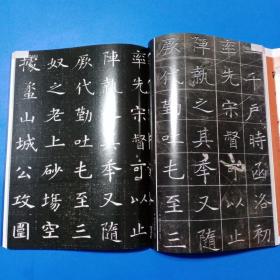 千戶時函
率先宗督可以止
陣執之其本又隨
厥代勤吐毛至三
率先宗督可以止
陣執之其本又隨
厥代勤吐毛至三
奴之老上砂場空
山城公攻圍